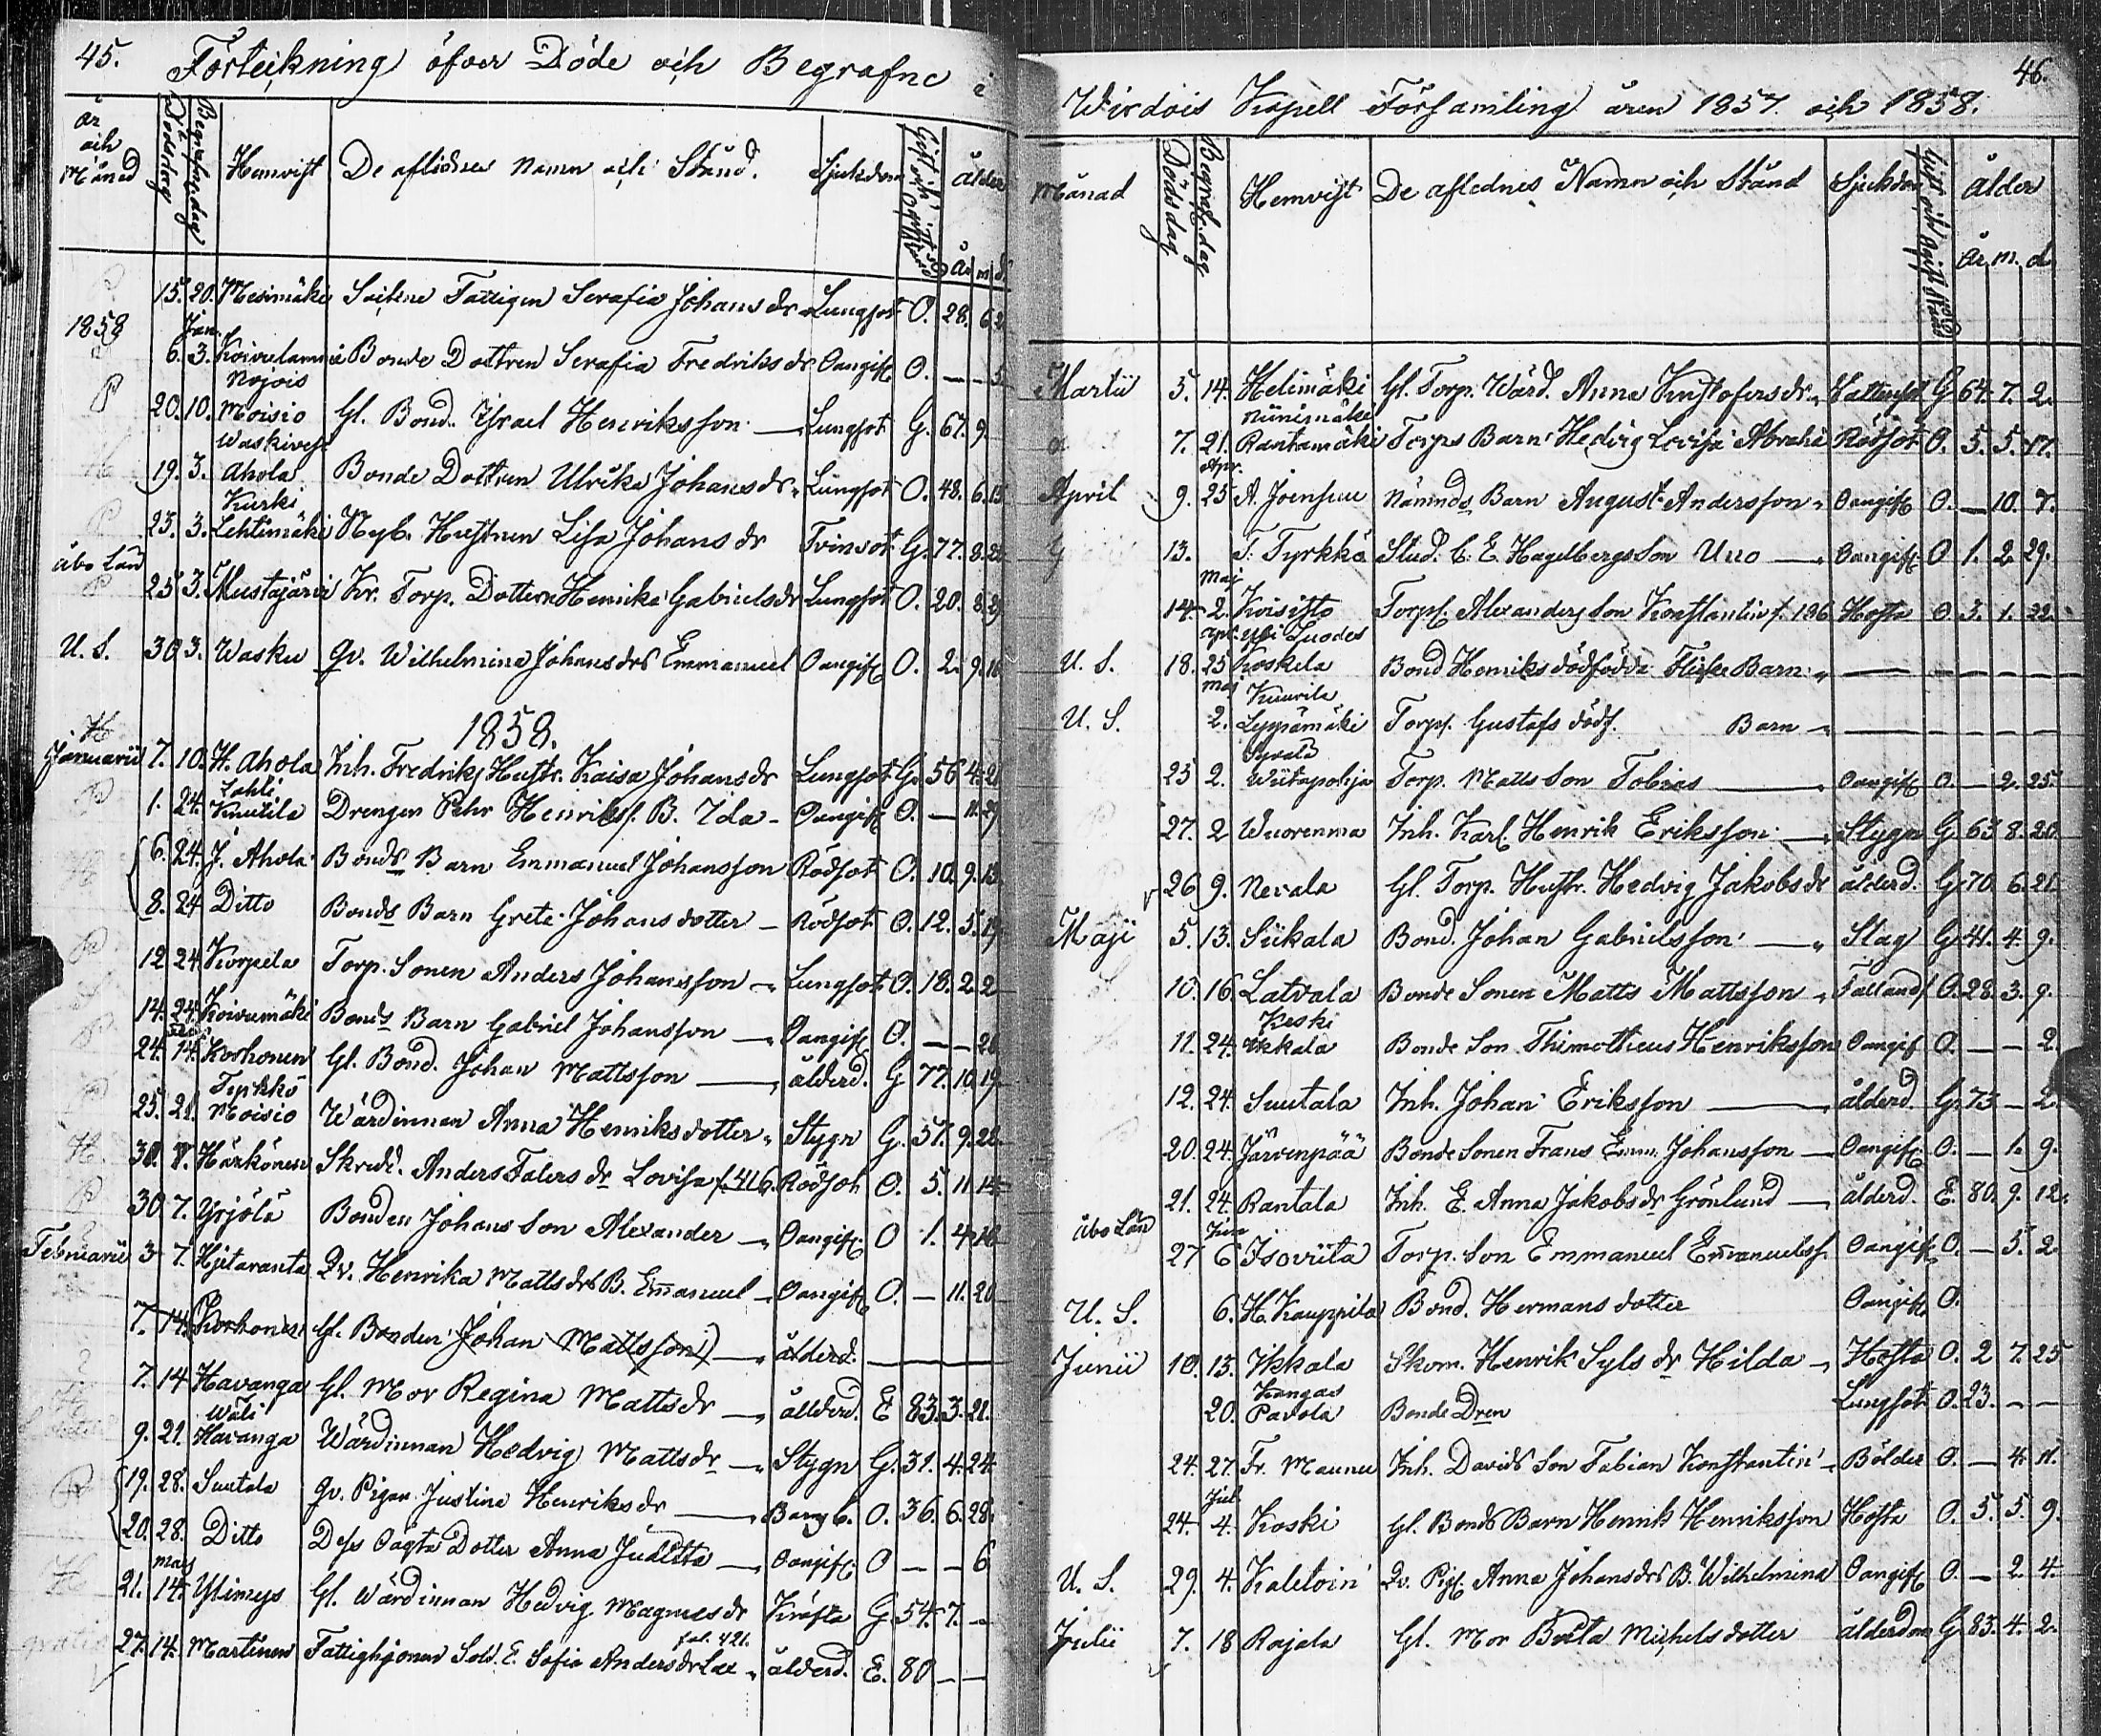 45. Förteckning öfver Döde och Begrafne i
år och Månad Dödsdag Begrafn.dag Hemvist De aflidnes namn och Stånd. Sjukdom Gift och ogift Stånd ålder
År m. d.
15. 20. Mesimäki Sytene Fattigen Serafia Johans dr Lungsot O. 28. 6
1858 Jan.
6. 3. Koivulammi Bonde Dottren Serafia Fredriks dr Oangif O. — — 5
Nojois
20. 10. Moisio Gl. Bond. Israel Henriksson — Lungsot G. 67. 9.
Waskivesi
19. 3. Ahola Bonde Dottren Ulrika Johans dr Lungsot O. 48. 6. 13
Kurki
23. 3. Lehtimäki Nyb. Hustrun Lisa Johans dr Tvinsot G. 77. 8. 22
åbo Län
25 3. Mustajärvi Kr. Torp. Dottern Henrika Gabriels dr Lungsot O. 20. 8. 29
U. S. 30 3. Wasku Qv. Wilhelmina Johans drs Emmanuel Oangif O. 2. 9. 16
1858.
Januarii 7. 10. H. Ahola Inh. Fredriks Hustr. Kaisa Johans dr Lungsot G. 56 4. 21
Lahti
1. 24. Knutila Drengen Pehr Henrikss. B. Ida — Oangif O. — 11. 29
6. 24. J. Ahola Bonds Barn Emmanuel Johansson Rödsot O. 10. 9. 13
8. 24 Ditto Bonds Barn Greta Johansdotter — Rödsot O. 12. 5. 19
12 24. Korpela Torp. Sonen Anders Johansson — Lungsot O. 18. 2. 2
14. 24. Koivumäki Bonds Barn Gabriel Johansson — Oangif O. — — 26
24. 14. Korhonen Gl. Bond. Johan Mattsson — ålderd. G 77. 10. 19
Tyrkkö
25. 21. Moisio Wärdinnan Anna Henriksdotter Stygn G. 57. 9. 22
30. 7. Härkönen Skredd. Anders Falers dr Lovisa f. 416. Rödsot O. 5. 11. 14
30. 7. Yrjölä Bonden Johans Son Alexander — Oangif O 1. 4. 16
Februarii 3 7. Hjitaranta Qv. Henrika Matts drs B. Emanuel — Oangif O. — 11. 20
7. 14. Korhonen Gl. Bonden Johan Mattsson — ålderd. —
7. 14 Havanga Gl. Mor Regina Matts dr — ålderd. E 83. 3. 21.
Wäli
9. 21. Havanga Wärdinnan Hedvig Matts dr — Stygn G. 31. 4. 24
19. 28. Suutala Qv. Pigan Justina Henriks dr — Barnsb. O. 36. 6. 28
20. 28. Ditto Dess Oägta Dotter Anna Juditta — Oangif O — — 6
mars
21. 14. Ylimys Gl. Wärdinnan Hedvig Magnus dr Kräfta G. 54. 7. —
fol. 421.
27. 14. Martinen Fattighjonen Sold. E. Sofia Anders dr Lax ålderd. E. 80 — —
46.
Wirdois Kapell Församling åren 1857. och 1858.
Månad Dödsdag Begraf.dag Hemvist De aflednes Namn och Stånd Sjukdom Gift och ogift Stånd ålder
År. m. d.
Martii 5. 14. Helimäki Gl. Torp. Wärd. Anna Kristofers dr Vattusot G 64. 7. 2.
Niinimäki
7. 21. Rantamäki Torps Barn Hedvig Lovisa Abrahs Rödsot O. 5. 5. 17.
Apr.
April 9. 25 A. Joensuu Nämnds Barn August Andersson Oangif O. — 10. 7.
13. T. Tyrkkö Stud. C. E. Hagelbergs Son Uno — Oangif O 1. 2 29.
Maj
14. 2. Koisisto Torps. Alexanders Son Konstantin f. 186 Hosta O 3. 1. 22.
apr. Yli Luodes
U. S. 18. 25 Koskela Bond Henriks dödfödda Flicke Barn — — — — —
maj Kuurila
U. S. 2. Leppämäki Torps. Gustafs dödf. Barn — — — — —
Syvälä
23 2. Wiitapohja Torp. Matts Son Tobias — Oangif O. — 2. 25.
27. 2 Wuorenma Inh. Karl Henrik Eriksson — Stygn G. 63 8. 20.
26 9. Nevala Gl. Torp. Hustr. Hedvig Jakobs dr ålderd. G. 70. 6. 21.
Maji 5. 13. Siikala Bond. Johan Gabrielsson — Slag G. 41. 4. 9.
10. 16. Latvala Bonde Sonen Matts Mattsson Falland. O. 28. 3. 9.
Keski
11. 24. Ikkala Bonde Son Thimotheus Henriksson Oangif O. — — 2.
12. 24. Suutala Inh. Johan Eriksson — ålderd. G. 73 — 2.
20. 24. Järvenpää Bonde Sonen Frans Emm. Johansson — Oangif O. — 1. 9.
21. 24. Rantala Inh. E. Anna Jakobs dr Grönlund — ålderd. E. 80. 9. 12.
åbo Län Jun
27 6 Isoviita Torp. Son Emmanuel Emanuelss. Oangif O. — 5. 2.
U. S. 6. H. Kauppila Bond. Hermans dotter Oangif O.
Junii 10. 13. Ikkala Skom. Henrik Syls dr Hilda — Hosta O. 2 7. 25
Kangas
20. Pavola Bonde Dren Lungsot O. 23. — —
24. 27. Fr. Maunu Inh. Davids Son Fabian Konstantin — Bölder O. — 4. 11.
Jul
24. 4. Koski Gl. Bonds Barn Henrik Henriksson Hosta O. 5. 5. 9.
U. S. 29. 4. Kaletoin Qv. Pig. Anna Johans drs B. Wilhelmina Oangif O. — 2. 4.
Julii 7. 18 Rajala Gl. Mor Beata Michelsdotter ålderdom G. 83. 4. 2.